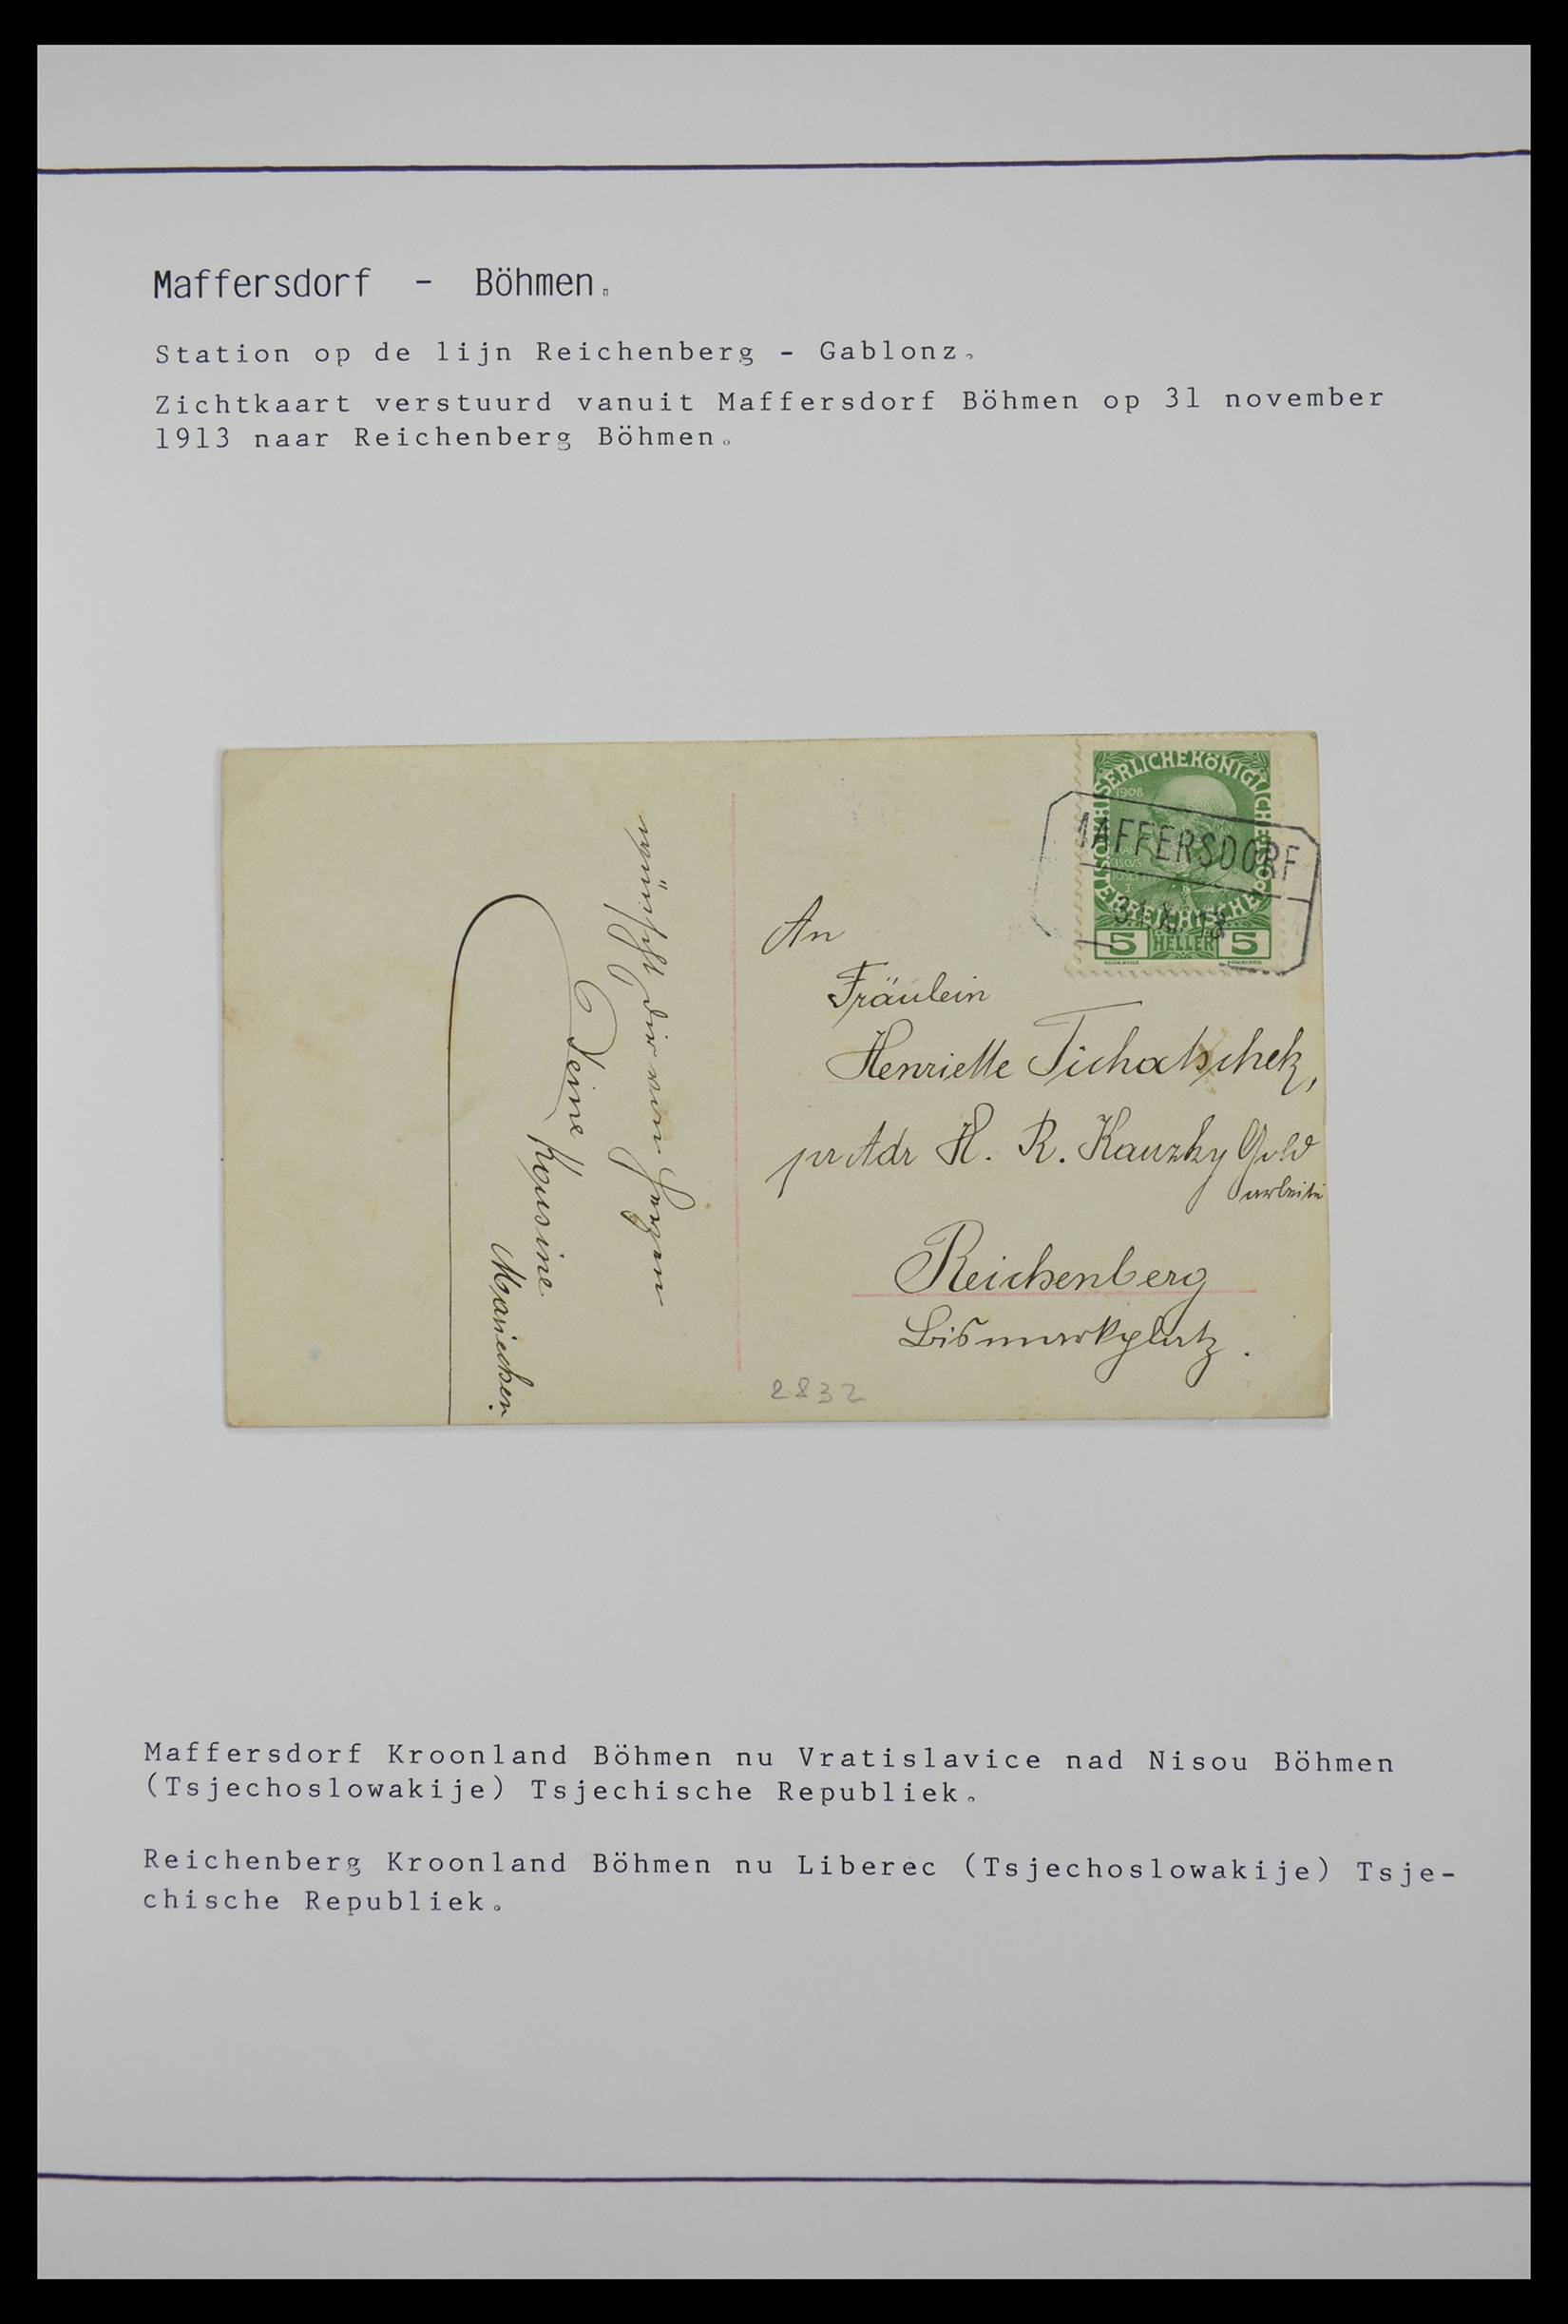 Maffersdorf - Böhmen.
Station op de lijn Reichenberg - Gablonz.
Zichtkaart verstuurd vanuit Maffersdorf Böhmen op 31 november
1913 naar Reichenberg Böhmen.
KAISERLICHE KÖNIGLICHE ÖSTERREICHISCHE POST
1908
5 HELLER 5
MAFFERSDORF
An
Fräulein
Henriette Tichatschek,
pr Adr H. R. Kauzky Gold
arbeiter
Reichenberg
Bismarkplatz.
2832
wünscht dir von Herzen
Deine Kousine
Mariechen.
Maffersdorf Kroonland Böhmen nu Vratislavice nad Nisou Böhmen
(Tsjechoslowakije) Tsjechische Republiek.
Reichenberg Kroonland Böhmen nu Liberec (Tsjechoslowakije) Tsje-
chische Republiek.